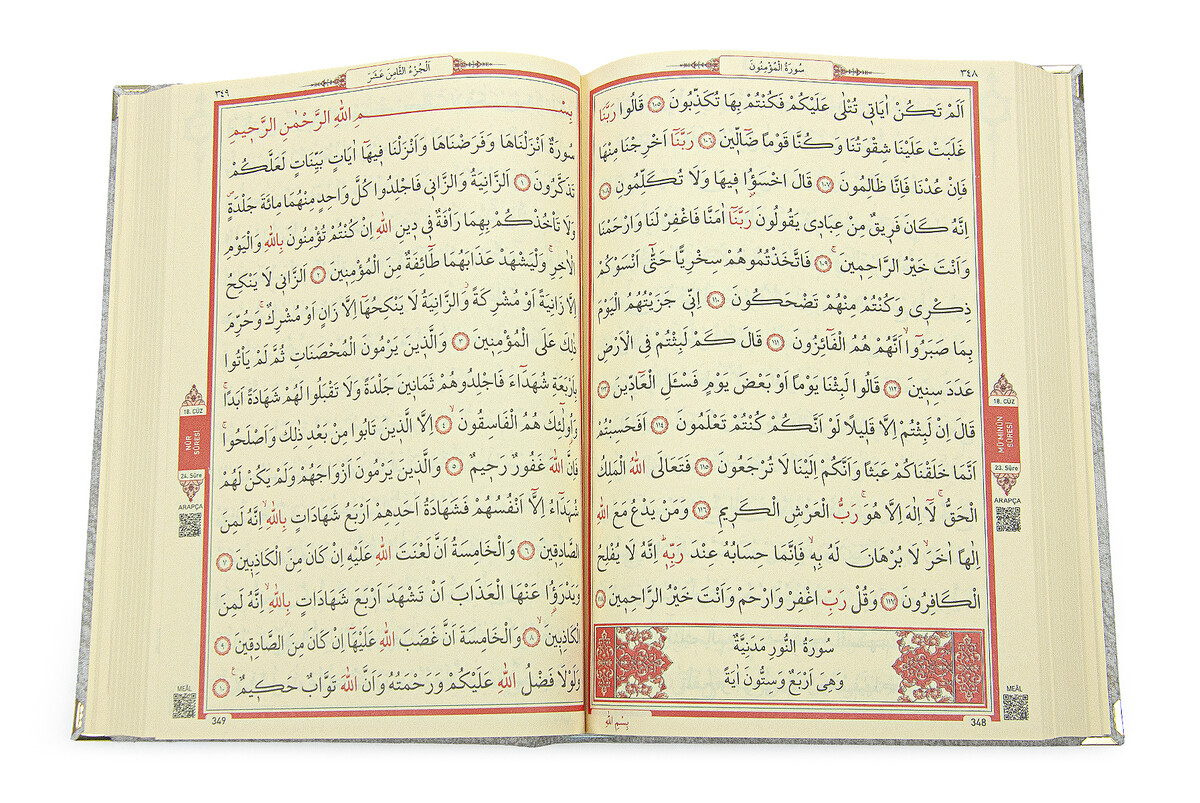 سُورَةُ الْمُؤْمِنُونَ
٣٤٨
اَلَمْ تَكُنْ اٰيَاتٖي تُتْلٰى عَلَيْكُمْ فَكُنْتُمْ بِهَا تُكَذِّبُونَ ﴿١٠٥﴾ قَالُوا رَبَّنَا
غَلَبَتْ عَلَيْنَا شِقْوَتُنَا وَكُنَّا قَوْمًا ضَٓالّٖينَ ﴿١٠٦﴾ رَبَّنَٓا اَخْرِجْنَا مِنْهَا
فَاِنْ عُدْنَا فَاِنَّا ظَالِمُونَ ﴿١٠٧﴾ قَالَ اخْسَؤُ۫ا فٖيهَا وَلَا تُكَلِّمُونِ ﴿١٠٨﴾
اِنَّهُ كَانَ فَرٖيقٌ مِنْ عِبَادٖي يَقُولُونَ رَبَّنَٓا اٰمَنَّا فَاغْفِرْ لَنَا وَارْحَمْنَا
وَاَنْتَ خَيْرُ الرَّاحِمٖينَۚ ﴿١٠٩﴾ فَاتَّخَذْتُمُوهُمْ سِخْرِيًّا حَتّٰٓى اَنْسَوْكُمْ
ذِكْرٖي وَكُنْتُمْ مِنْهُمْ تَضْحَكُونَ ﴿١١٠﴾ اِنّٖي جَزَيْتُهُمُ الْيَوْمَ
بِمَا صَبَرُٓواۙ اَنَّهُمْ هُمُ الْفَٓائِزُونَ ﴿١١١﴾ قَالَ كَمْ لَبِثْتُمْ فِي الْاَرْضِ
عَدَدَ سِنٖينَ ﴿١١٢﴾ قَالُوا لَبِثْنَا يَوْمًا اَوْ بَعْضَ يَوْمٍ فَسْـَٔلِ الْعَٓادّٖينَ ﴿١١٣﴾
قَالَ اِنْ لَبِثْتُمْ اِلَّا قَلٖيلًا لَوْ اَنَّكُمْ كُنْتُمْ تَعْلَمُونَ ﴿١١٤﴾ اَفَحَسِبْتُمْ
اَنَّمَا خَلَقْنَاكُمْ عَبَثًا وَاَنَّكُمْ اِلَيْنَا لَا تُرْجَعُونَ ﴿١١٥﴾ فَتَعَالَى اللّٰهُ الْمَلِكُ
الْحَقُّۚ لَٓا اِلٰهَ اِلَّا هُوَۚ رَبُّ الْعَرْشِ الْكَرٖيمِ ﴿١١٦﴾ وَمَنْ يَدْعُ مَعَ اللّٰهِ
اِلٰهًا اٰخَرَۙ لَا بُرْهَانَ لَهُ بِهٖۙ فَاِنَّمَا حِسَابُهُ عِنْدَ رَبِّهٖؕ اِنَّهُ لَا يُفْلِحُ
الْكَافِرُونَ ﴿١١٧﴾ وَقُلْ رَبِّ اغْفِرْ وَارْحَمْ وَاَنْتَ خَيْرُ الرَّاحِمٖينَ ﴿١١٨﴾
سُورَةُ النُّورِ مَدَنِيَّةٌ
وَهِيَ اَرْبَعٌ وَسِتُّونَ اٰيَةً
بِسْمِ اللّٰهِ
348
18. CÜZ
MÜ'MİNÛN SÛRESİ
23. Sûre
ARAPÇA
MEÂL
اَلْجُزْءُ الثَّامِنَ عَشَرَ
٣٤٩
بِسْمِ اللّٰهِ الرَّحْمٰنِ الرَّحٖيمِ
سُورَةٌ اَنْزَلْنَاهَا وَفَرَضْنَاهَا وَاَنْزَلْنَا فٖيهَٓا اٰيَاتٍ بَيِّنَاتٍ لَعَلَّكُمْ
تَذَكَّرُونَ ﴿١﴾ اَلزَّانِيَةُ وَالزَّانٖي فَاجْلِدُوا كُلَّ وَاحِدٍ مِنْهُمَا مِائَةَ جَلْدَةٍࣕ
وَلَا تَأْخُذْكُمْ بِهِمَا رَأْفَةٌ فٖي دٖينِ اللّٰهِ اِنْ كُنْتُمْ تُؤْمِنُونَ بِاللّٰهِ وَالْيَوْمِ
الْاٰخِرِۚ وَلْيَشْهَدْ عَذَابَهُمَا طَٓائِفَةٌ مِنَ الْمُؤْمِنٖينَ ﴿٢﴾ اَلزَّانٖي لَا يَنْكِحُ
اِلَّا زَانِيَةً اَوْ مُشْرِكَةًؗ وَالزَّانِيَةُ لَا يَنْكِحُهَٓا اِلَّا زَانٍ اَوْ مُشْرِكٌۚ وَحُرِّمَ
ذٰلِكَ عَلَى الْمُؤْمِنٖينَ ﴿٣﴾ وَالَّذٖينَ يَرْمُونَ الْمُحْصَنَاتِ ثُمَّ لَمْ يَأْتُوا
بِاَرْبَعَةِ شُهَدَٓاءَ فَاجْلِدُوهُمْ ثَمَانٖينَ جَلْدَةً وَلَا تَقْبَلُوا لَهُمْ شَهَادَةً اَبَدًاۚ
وَاُو۬لٰٓئِكَ هُمُ الْفَاسِقُونَۙ ﴿٤﴾ اِلَّا الَّذٖينَ تَابُوا مِنْ بَعْدِ ذٰلِكَ وَاَصْلَحُواۚ
فَاِنَّ اللّٰهَ غَفُورٌ رَحٖيمٌ ﴿٥﴾ وَالَّذٖينَ يَرْمُونَ اَزْوَاجَهُمْ وَلَمْ يَكُنْ لَهُمْ
شُهَدَٓاءُ اِلَّٓا اَنْفُسُهُمْ فَشَهَادَةُ اَحَدِهِمْ اَرْبَعُ شَهَادَاتٍ بِاللّٰهِۙ اِنَّهُ لَمِنَ
الصَّادِقٖينَ ﴿٦﴾ وَالْخَامِسَةُ اَنَّ لَعْنَتَ اللّٰهِ عَلَيْهِ اِنْ كَانَ مِنَ الْكَاذِبٖينَ ﴿٧﴾
وَيَدْرَؤُ۬ا عَنْهَا الْعَذَابَ اَنْ تَشْهَدَ اَرْبَعَ شَهَادَاتٍ بِاللّٰهِۙ اِنَّهُ لَمِنَ
الْكَاذِبٖينَۙ ﴿٨﴾ وَالْخَامِسَةَ اَنَّ غَضَبَ اللّٰهِ عَلَيْهَٓا اِنْ كَانَ مِنَ الصَّادِقٖينَ ﴿٩﴾
وَلَوْلَا فَضْلُ اللّٰهِ عَلَيْكُمْ وَرَحْمَتُهُ وَاَنَّ اللّٰهَ تَوَّابٌ حَكٖيمٌۚ ﴿١٠﴾
349
18. CÜZ
NÛR SÛRESİ
24. Sûre
ARAPÇA
MEÂL